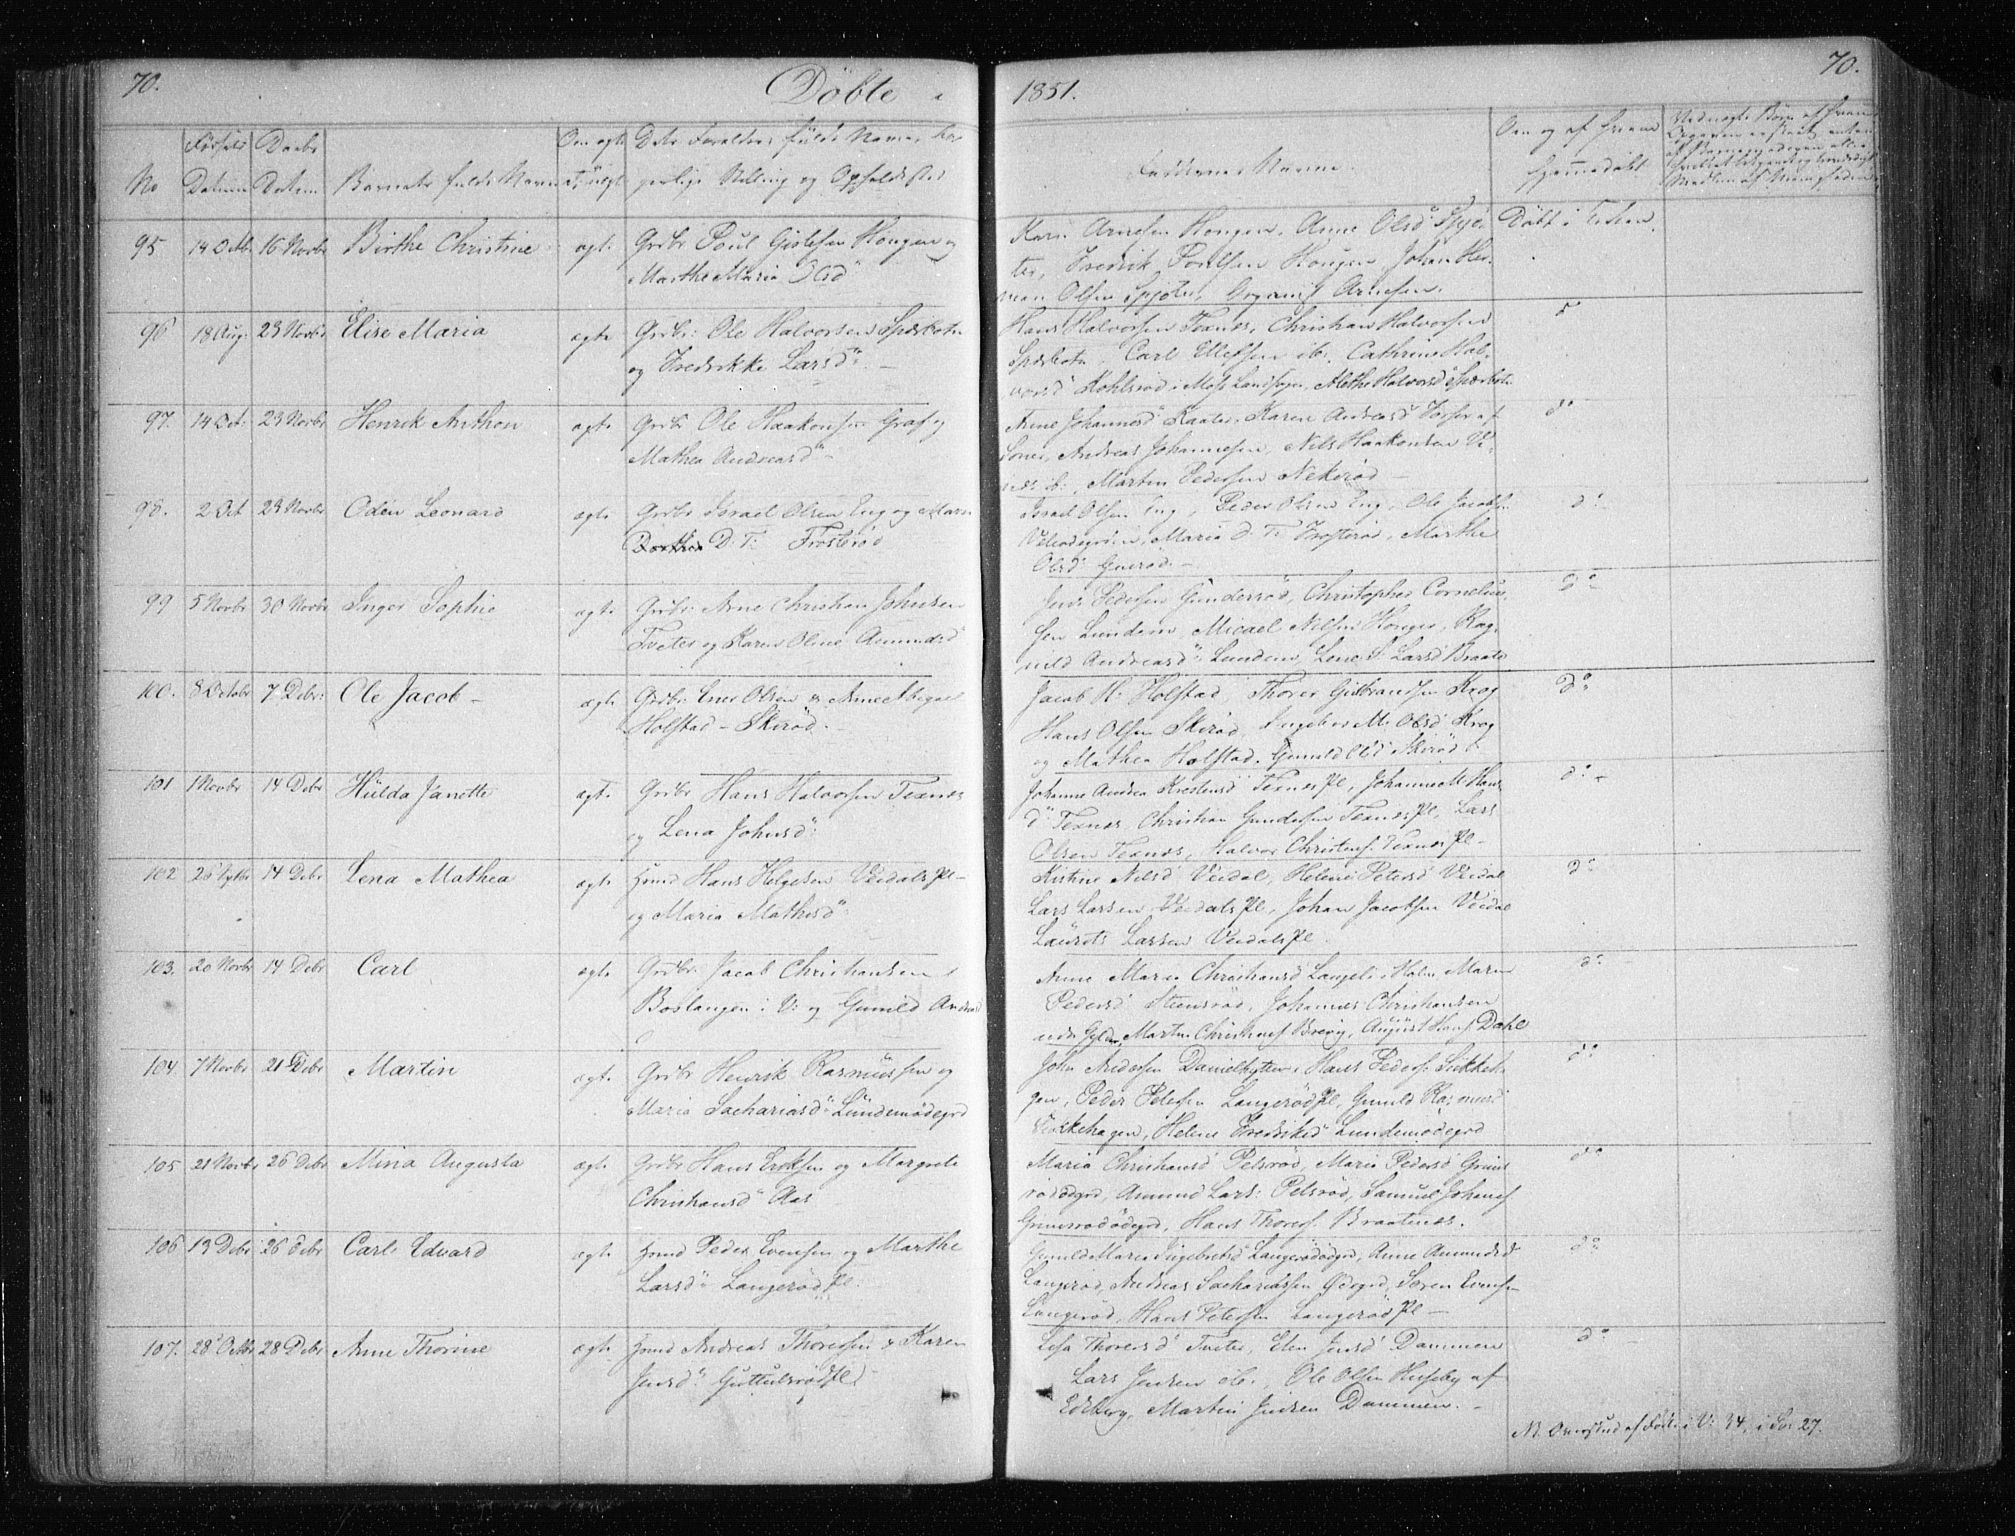 70.
Döbte i
1851.
70.
No
Fødsels Datum
Daabs Datum
Barnets fulde Navn
Om ægte, uægte
Dets Forældres fulde Navne, borgerlige Stilling og Opholdssted
Faddernes Navne.
Om og af hvem hjemmedöbt
95 14 Octb 16 Novbr Birthe Christine ægte
Grdbr Poul Gislesen Hougen og
Marthe Maria Old"
Kari Arnesen Hougen, Anne Olsd" Spjö-
ter, Fredrik Poulsen Hougen, Johan Her-
man Olsen Spjöter, Arnesen.
Döbt i Kirken.
96 18 Aug: 23 Novbr Elise Maria ægte
Grdbr: Ole Halvorsen Spærbotn
og Fredrikke Larsd" –
Hans Halvorsen Texnes, Christian Halvorsen
Spærbotn, Carl Ellefsen ib:, Cathrine Hal-
vorsd" Kohlsröd i Moss Landsogn, Alethe Halvorsd Spærbotn
d°
97. 14 Oct: 23 Novbr Henrik Anthon ægte
Grdbr Ole Haakonsen Graf og
Mathea Andreasd" –
Anne Johannesd" Kaater, Karen Andreasd
Andreas Johannesen, Nils Haakonsen Vi-
ib:, Martin Pedersen Nekeröd –
d°
98. 2 Oct 23 Novbr Oden Leonard ægte
Grdbr Israel Olsen Eng og Maren
Dorthea D: T: Frosteröd
Israel Olsen Eng, Peder Olsen Eng, Ole Jacobsen
Maria D. T. Frosteröd, Marthe
Olsd –
d°
99 5 Novbr 30 Novbr Inger Sophie ægte
Grdbr: Arne Christian Johnsen
Tveter og Karen Oline Amundsd"
Jens Pedersen Gunderröd, Christopher Cornelius-
sen Lunden, Micael Nilsen Hougen, Rag-
nild Andreasd": Lunden, Larsd Braate
d°
100. 8 Octobr 7 Debr: Ole Jacob – ægte
Grdbr: Ener Olsen & Anne Abigael
Holstad – Skiröd.
Jacob H: Holstad, Thorer Gulbrandsen Krog
Hans Olsen Skiröd, Ingeborg M. Olsd Krog
og Mathea Holstad. Gunild Olsd Skiröd –
d°
101 1 Novbr 14 Debr Hülda Janette ægte
Grdbr Hans Halvorsen Texnes
og Lena Johnsd":
Johanne Andrea Krestensd Texnes Pl, Johanne M. Hans
d" Texnes, Christian Gundersen Texnes Pl, Lars
Olsen Texnes, Halvor Christens: Texnes Pl –
d° –
102 26 Sptbr 14 Debr Lena Mathea ægte
Huusmd Hans Helgesen Veidals Pl –
og Maria Mathisd":
Kistine Nilsd Veidal, Helene Petersd Veidal
Lars Larsen Veidals Pl, Johan Jacobsen Veidal
Laurits Larsen Veidals Pl.
d°
103. 20 Novbr 14 Debr Carl ægte
Grdbr: Jacob Christiansen
Boslangen i V: og Gunild Andreasd
Anne Maria Christiansd Langeli i Holm, Maren
Pedersd Steensröd, Johannes Christiansen
Martin Christians Brevig, August Hans: Dahl
d°
104. 7 Novbr 21 Debr Martin ægte
Grdbr Henrik Rasmussen og
Maria Sachariasd" Lundemödegrd
John Andersen Danielbytten, Hans Peders: Sikkeha-
gen, Peder Petersen Langeröd Pl, Gunild Rasmusd
Vikkehagen, Helene Fredriksd" Lundemödegrd
d°
105 21 Novbr 26 Debr Mina Augusta ægte
Grdbr Hans Eriksen og Margrete
Christiansd" Aas
Maria Christiansd Petsröd, Maria Pedersd Grims-
rödödegrd, Amund Lars: Petsröd, Samuel Johans:
Grimsrödödegrd, Hans Thores: Braatenes.
d°
106 13 Debr 26 Debr Carl Edvard ægte
Huusmd Peder Evensen og Marthe
Larsd" Langeröd Pl.
Gunild Maria Ingebretsd Langerödödegrd, Anne Amundsd
Langeröd, Andreas Sachariassen Ödegrd, Sören Evensen
Langeröd, Hans Petersen Langeröd Pl –
d°
107. 28 Octbr 28 Debr Anne Thorine ægte
Huusmd Andreas Thoresen & Karen
Jensd" Guttulsröd Pl –
Lisa Thoresd Tveter, Elen Jensd Dammen
Lars Jensen ib:, Ole Olsen Huseby af
Edsberg, Martin Jensen Dammen. –
d°